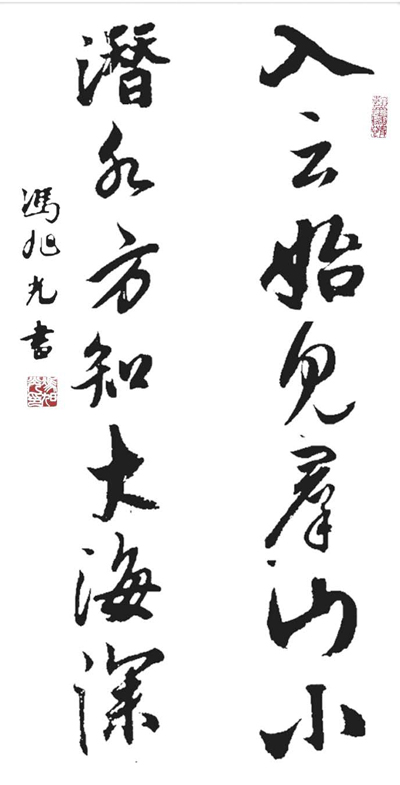 入云始见群山小
潜水方知大海深
冯旭光书